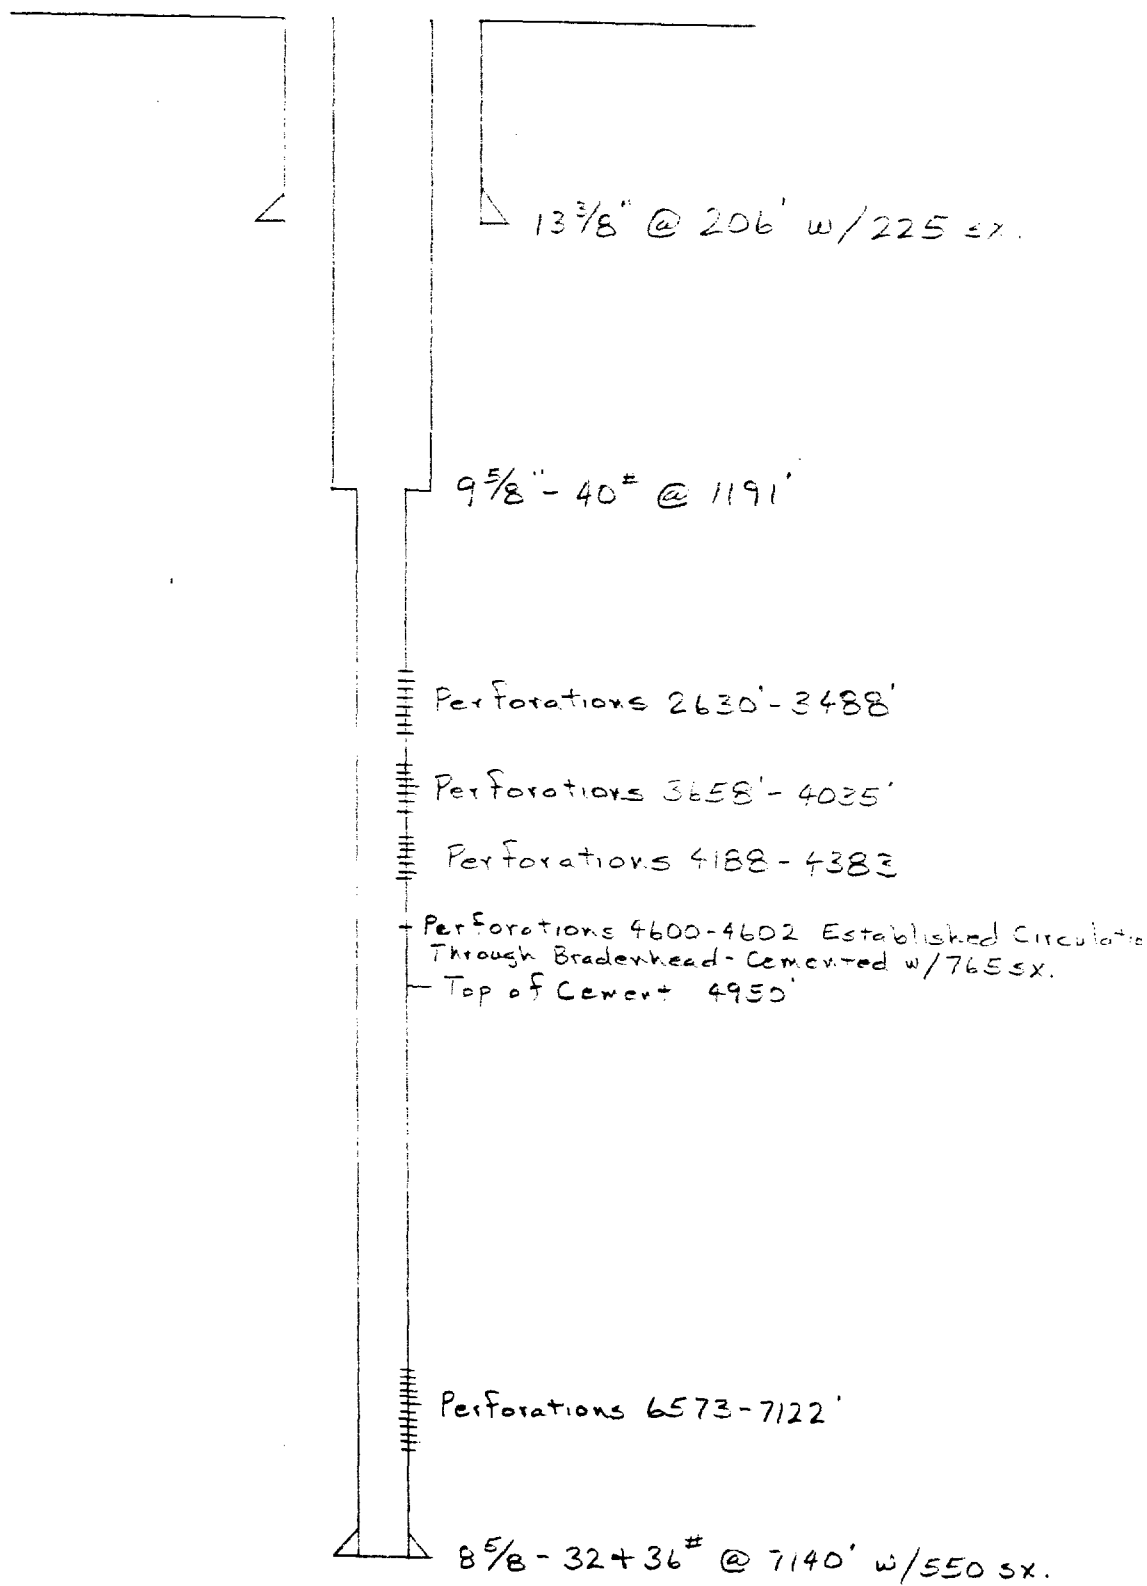 13 3/8" @ 206' w/225 sx.
9 5/8" - 40# @ 1191'
Perforations 2630' - 3488'
Perforations 3658' - 4035'
Perforations 4188 - 4383
Perforations 4600-4602 Established Circulatio
Through Bradenhead - Cemented w/765 sx.
Top of Cement 4950'
Perforations 6573 - 7122'
8 5/8 - 32 + 36# @ 7140' w/550 sx.